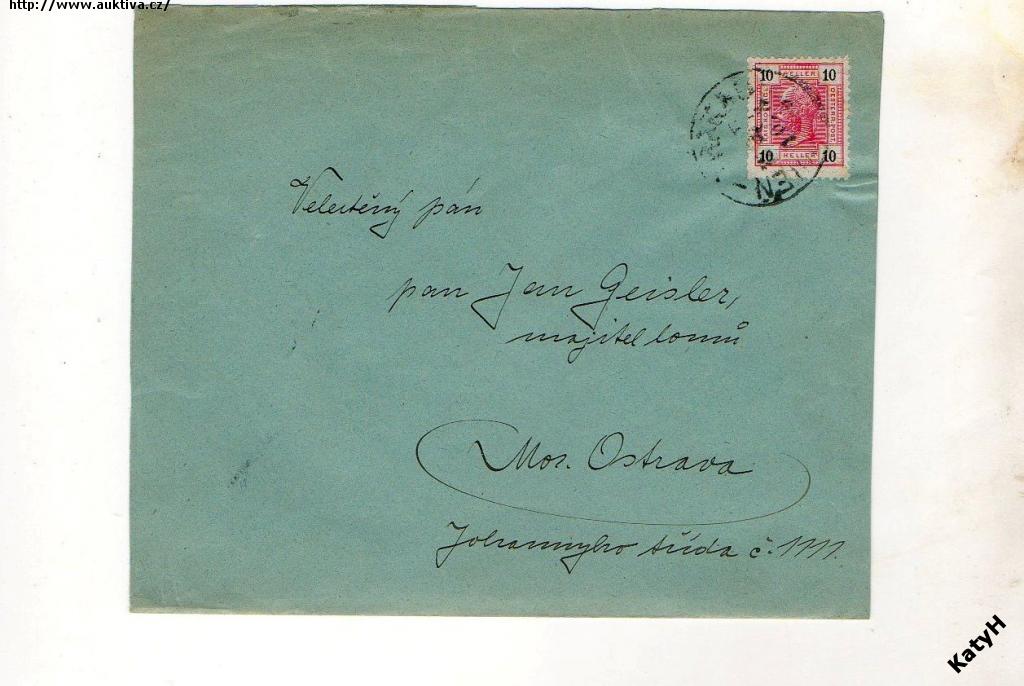 http://www.auktiva.cz/
10 HELLER 10
10 HELLER 10
Velectěný pán
pan Jan Geisler,
majitel lomů
Mor. Ostrava
Johannyho třída č. 1111.
KatyH